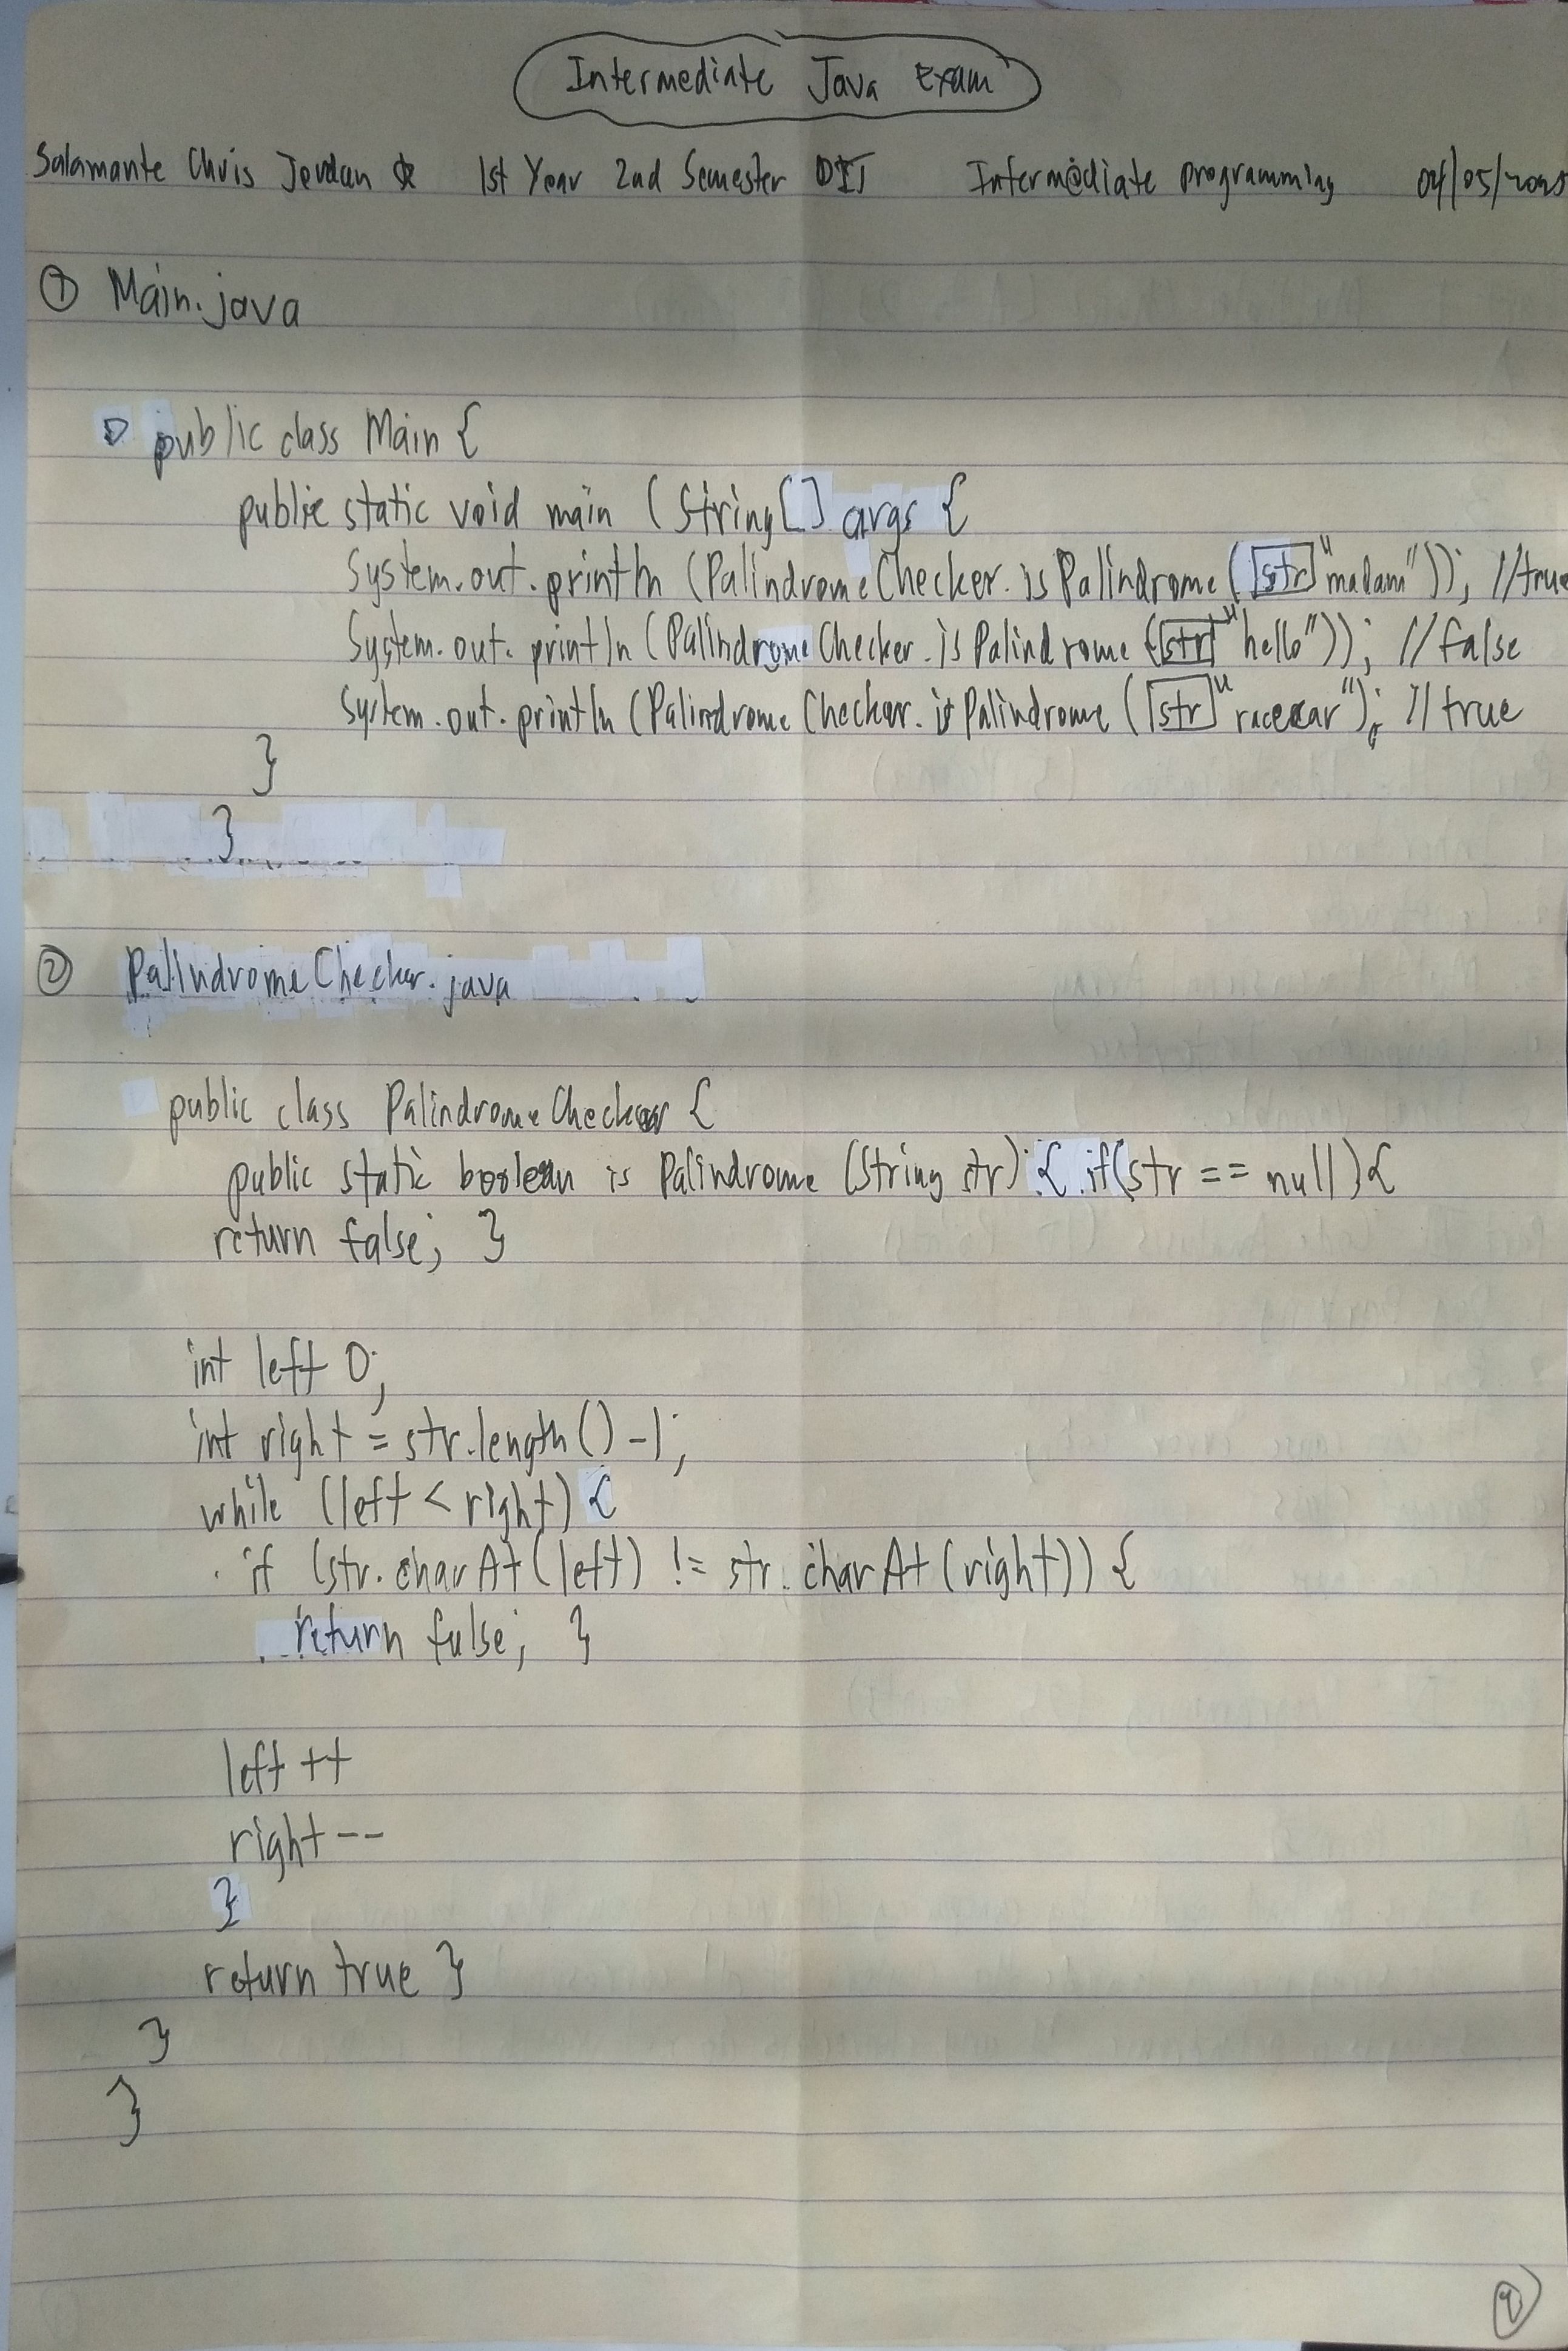 Intermediate Java Exam
Salamante Chris Jordan 1st Year 2nd Semester DIT Intermediate programming 04/05/2025
① Main.java
public class Main {
public static void main (String[] args {
System.out.println (PalindromeChecker.isPalindrome ([str] "madam")); //true
System.out.println (PalindromeChecker.isPalindrome ([str] "hello")); //false
System.out.println (PalindromeChecker.isPalindrome ([str] "racecar"); //true
}
}
② PalindromeChecker.java
public class PalindromeChecker {
public static boolean is Palindrome (String str) { if(str == null){
return false; }
int left 0;
int right = str.length() -1;
while (left < right) {
if (str.charAt(left) != str.charAt(right)) {
return false; }
left ++
right --
}
return true }
}
}